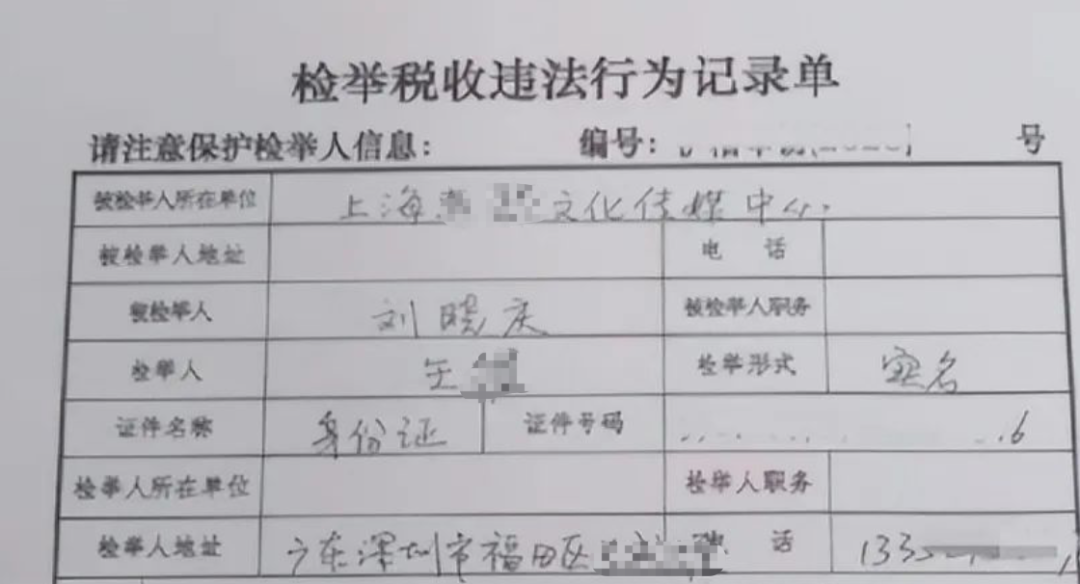 检举税收违法行为记录单
请注意保护检举人信息： 编号： 号
被检举人所在单位 上海 文化传媒中心
被检举人地址 电 话
被检举人 刘晓庆 被检举人职务
检举人 王 检举形式 实名
证件名称 身份证 证件号码 6
检举人所在单位 检举人职务
检举人地址 广东深圳市福田区 话 133